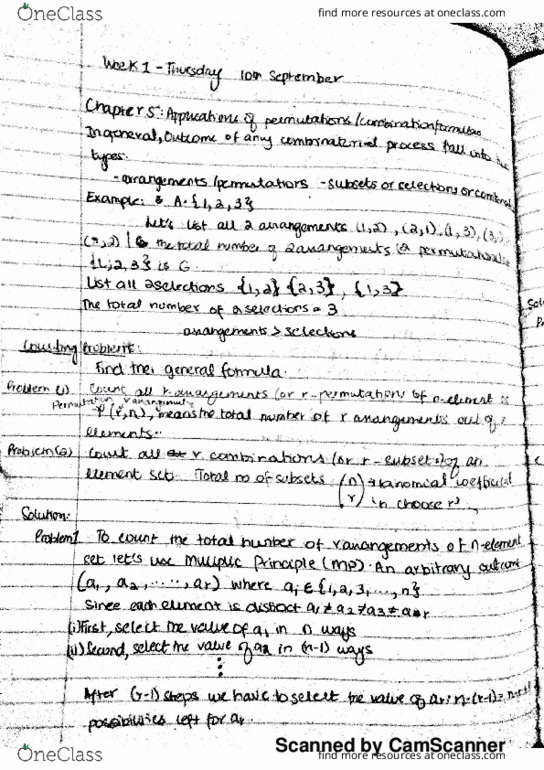 OneClass
find more resources at oneclass.com
Week 1 - Thursday 10th September
Chapter 5: Applications of permutations/combination formulas
In general, Outcome of any combinatorial process fall into
types:
- arrangements/permutations - subsets or selections or
Example: A = {1, 2, 3}
Let's list all 2 arrangements (1,2), (2,1), (1,3), (3,
the total number of 2 arrangements
{1, 2, 3} is 6.
List all 2 selections {1,2} {2,3}, {1,3}
The total number of 2 selections = 3
arrangements > selections
Counting Problems:
Find the general formula.
Problem (1) Count all r-arrangements (or r-permutations of n-element
Permutation
P(r,n), means the total number of r arrangements out of
elements.
Problem (2) Count all r combinations (or r-subsets) of an
element set. Total no of subsets (n r) → binomial coefficient
'n choose r'
Solution:
Problem 1 To count the total number of r arrangements of n-element
set let's use Multiplic Principle (MP). An arbitrary outcome
(a₁, a₂, ....., aᵣ) where aᵢ ∈ {1, 2, 3, ..., n}
Since each element is distinct a₁ ≠ a₂ ≠ a₃ ≠ aᵣ
(i) First, select the value of a₁ in n ways
(ii) Second, select the value of a₂ in (n-1) ways
⋮
After (r-1) steps we have to select the value of aᵣ: n-(r-1) =
possibilities left for aᵣ.
Scanned by CamScanner
OneClass
find more resources at oneclass.com